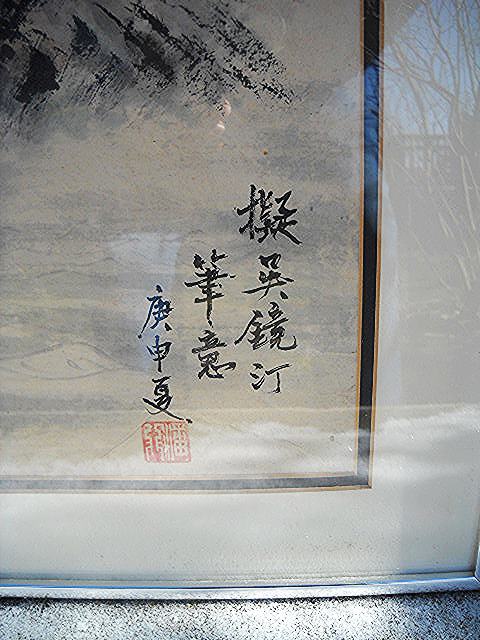 擬吳鏡汀
筆意
庚申夏